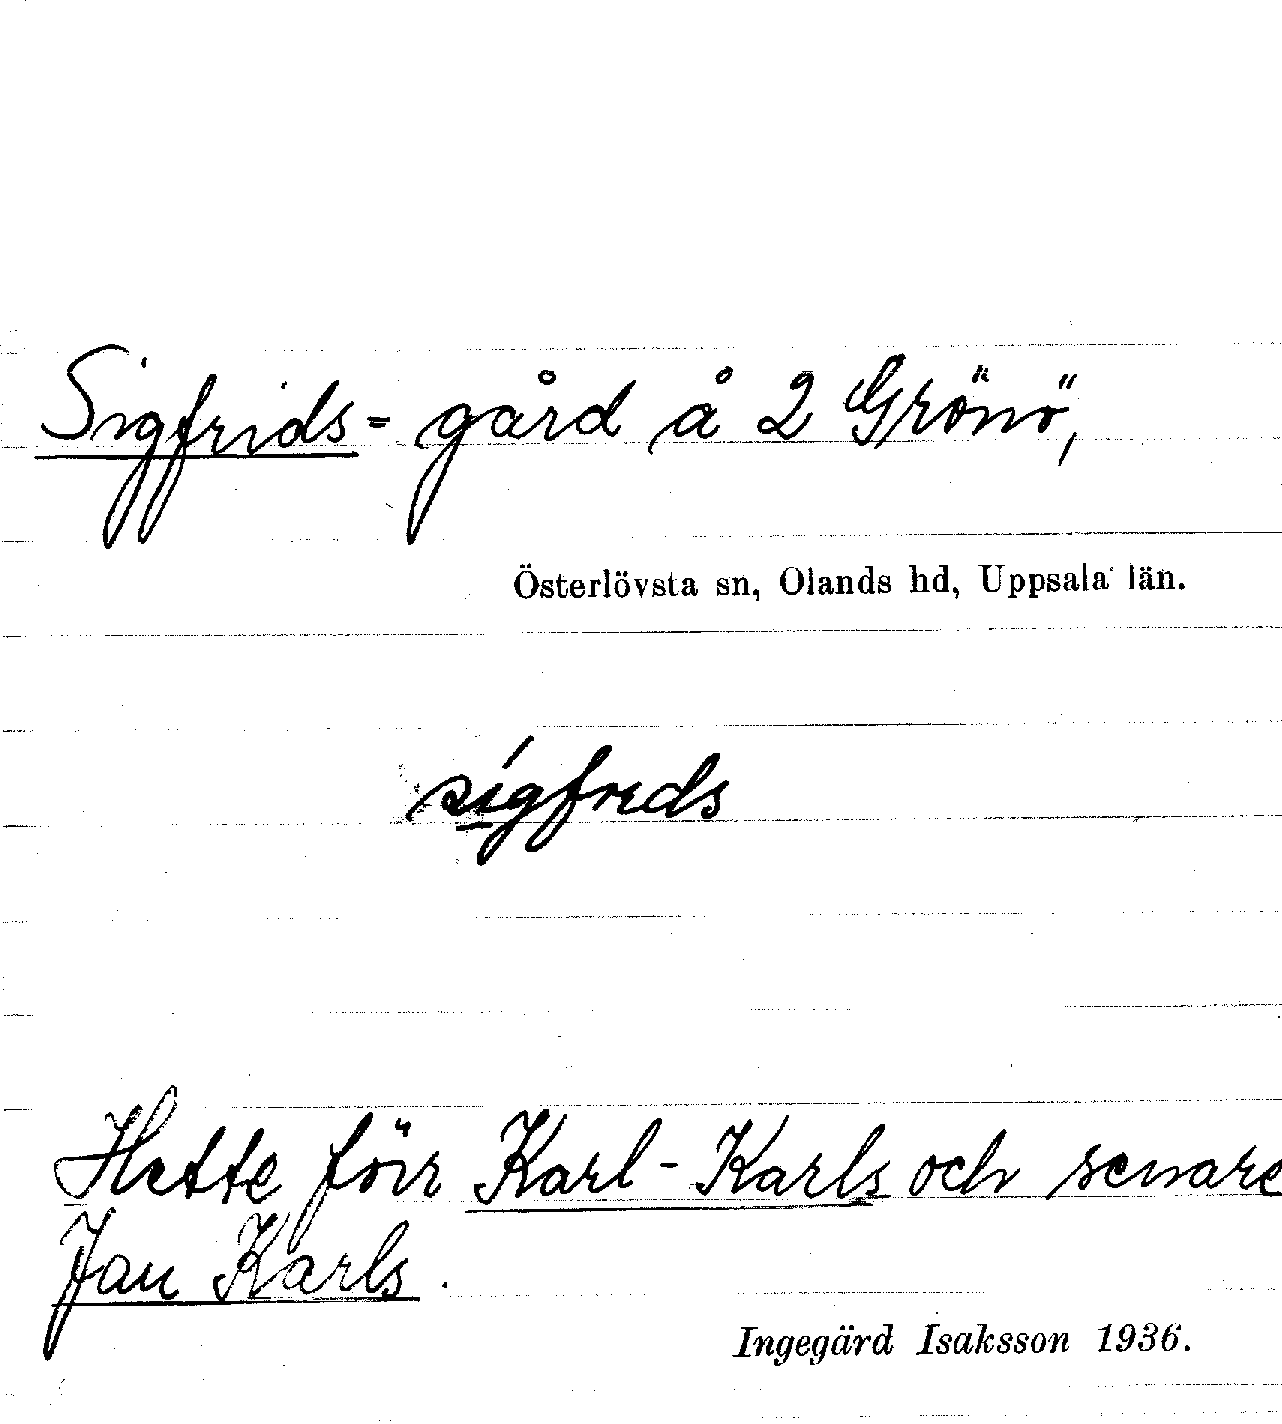 Sigfrids = gård å 2 Grönö,
Österlövsta sn, Olands hd, Uppsala län.
sígfreds
Hette förr Karl-Karls och senare
Jan Karls.
Ingegärd Isaksson 1936.